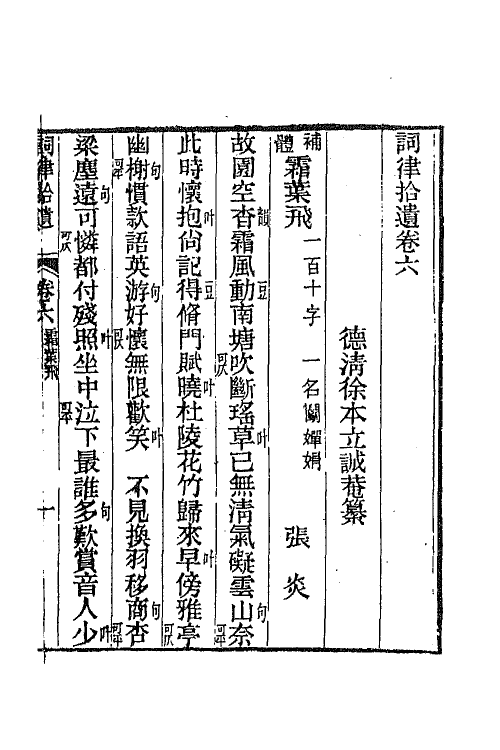 詞律拾遺卷六
德清徐本立誠菴纂
補體 霜葉飛 一百十字 一名鬬嬋娟 張炎
故園空杳韻霜風動豆南塘吹可仄斷瑤草叶已無清氣礙雲山句奈可平
此時懷抱叶尙記得豆脩門賦曉叶杜陵花竹歸來早叶傍雅亭可仄
幽榭可平句慣款語英游句好懷可仄無限歡笑叶 不見換羽移商句杏可平
梁塵遠句可可仄憐都付殘照叶坐中泣可平下最誰多句歎賞音人少叶
詞律拾遺 卷六 霜葉飛 十